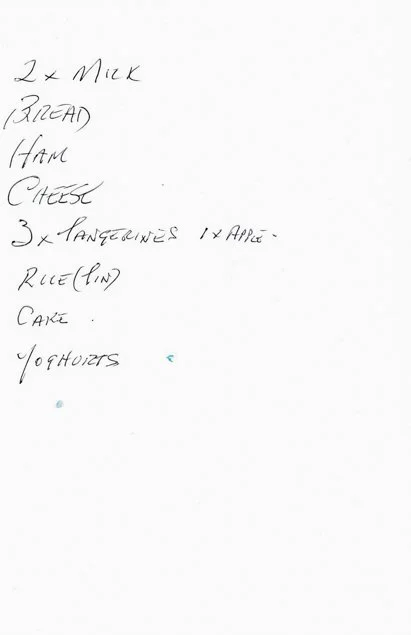 2 x MILK
BREAD
HAM
CHEESE
3 x TANGERINES 1 x APPLE -
RICE (TIN)
CAKE .
YOGHURTS